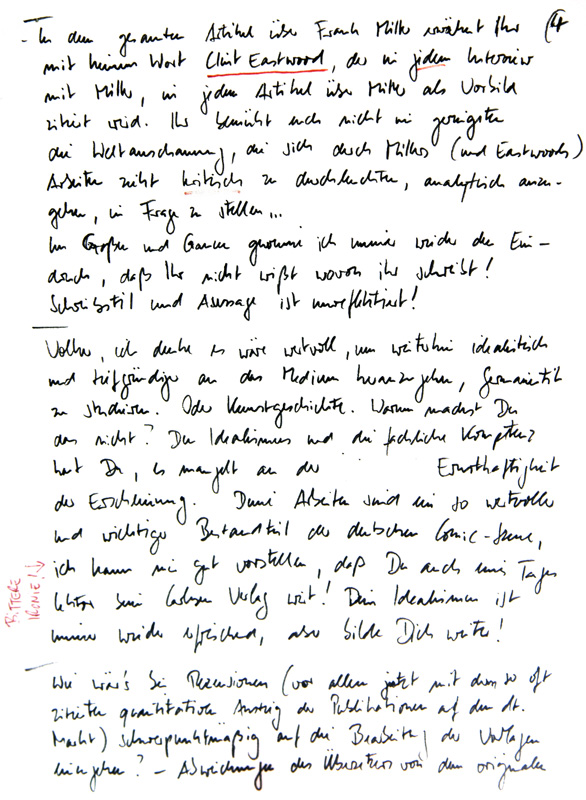 - In dem gesamten Artikel über Frank Miller erwähnt Ihr 4
mit keinem Wort Clint Eastwood, der in jedem Interview
mit Miller, in jedem Artikel über Miller als Vorbild
zitiert wird. Ihr bemüht euch nicht im geringsten
die Weltanschauung, die sich durch Millers (und Eastwoods)
Arbeiten zieht kritisch zu durchleuchten, analytisch anzu-
gehen, in Frage zu stellen...
Im Großen und Ganzen gewinne ich immer wieder den Ein-
druck, daß Ihr nicht wißt wovon ihr schreibt!
Schreibstil und Aussage ist unreflektiert!
Volker, ich denke es wäre wertvoll, um weiterhin idealistisch
und tiefgründig an das Medium heranzugehen, Germanistik
zu studieren. Oder Kunstgeschichte. Warum machst Du
das nicht? Den Idealismus und die fachliche Kompetenz
hast Du, es mangelt an der Ernsthaftigkeit
der Erscheinung. Deine Arbeiten sind ein so wertvoller
und wichtiger Bestandteil der deutschen Comic-Szene,
BITTERE IRONIE!
ich kann mir gut vorstellen, daß Du auch eines Tages
Lektor beim Carlsen Verlag wirst! Dein Idealismus ist
immer wieder erfrischend, also bilde Dich weiter!
Wie wär's bei Rezensionen (vor allem jetzt mit dem so oft
zitierten quantitativen Anstieg der Publikationen auf dem dt.
Markt) schwerpunktmäßig auf die Bearbeitung der Vorlagen
einzugehen? - Abweichungen des Übersetzers von dem originalen